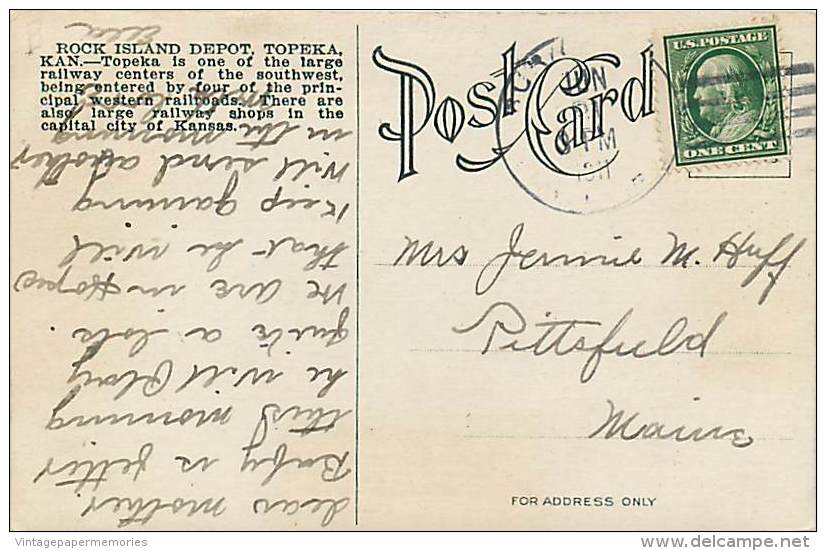 ROCK ISLAND DEPOT, TOPEKA,
KAN.—Topeka is one of the large
railway centers of the southwest,
being entered by four of the prin-
cipal western railroads. There are
also large railway shops in the
capital city of Kansas.
Post Card
U.S. POSTAGE
ONE CENT
JUN
PM
1911
Mrs Jennie M. Huff
Pittsfield
Maine
FOR ADDRESS ONLY
dear mother
Baby is better
this morning
he will play
quite a lot.
we are in hopes
that he will
Keep gaining
will send another
in the morning
Ella
Vintagepapermemories
delcampe.net